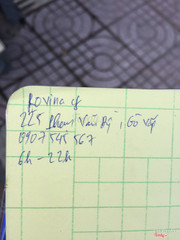 Rovina cf
225 Phạm Văn Bạch, Gò Vấp
0907 545 567
6h - 22h